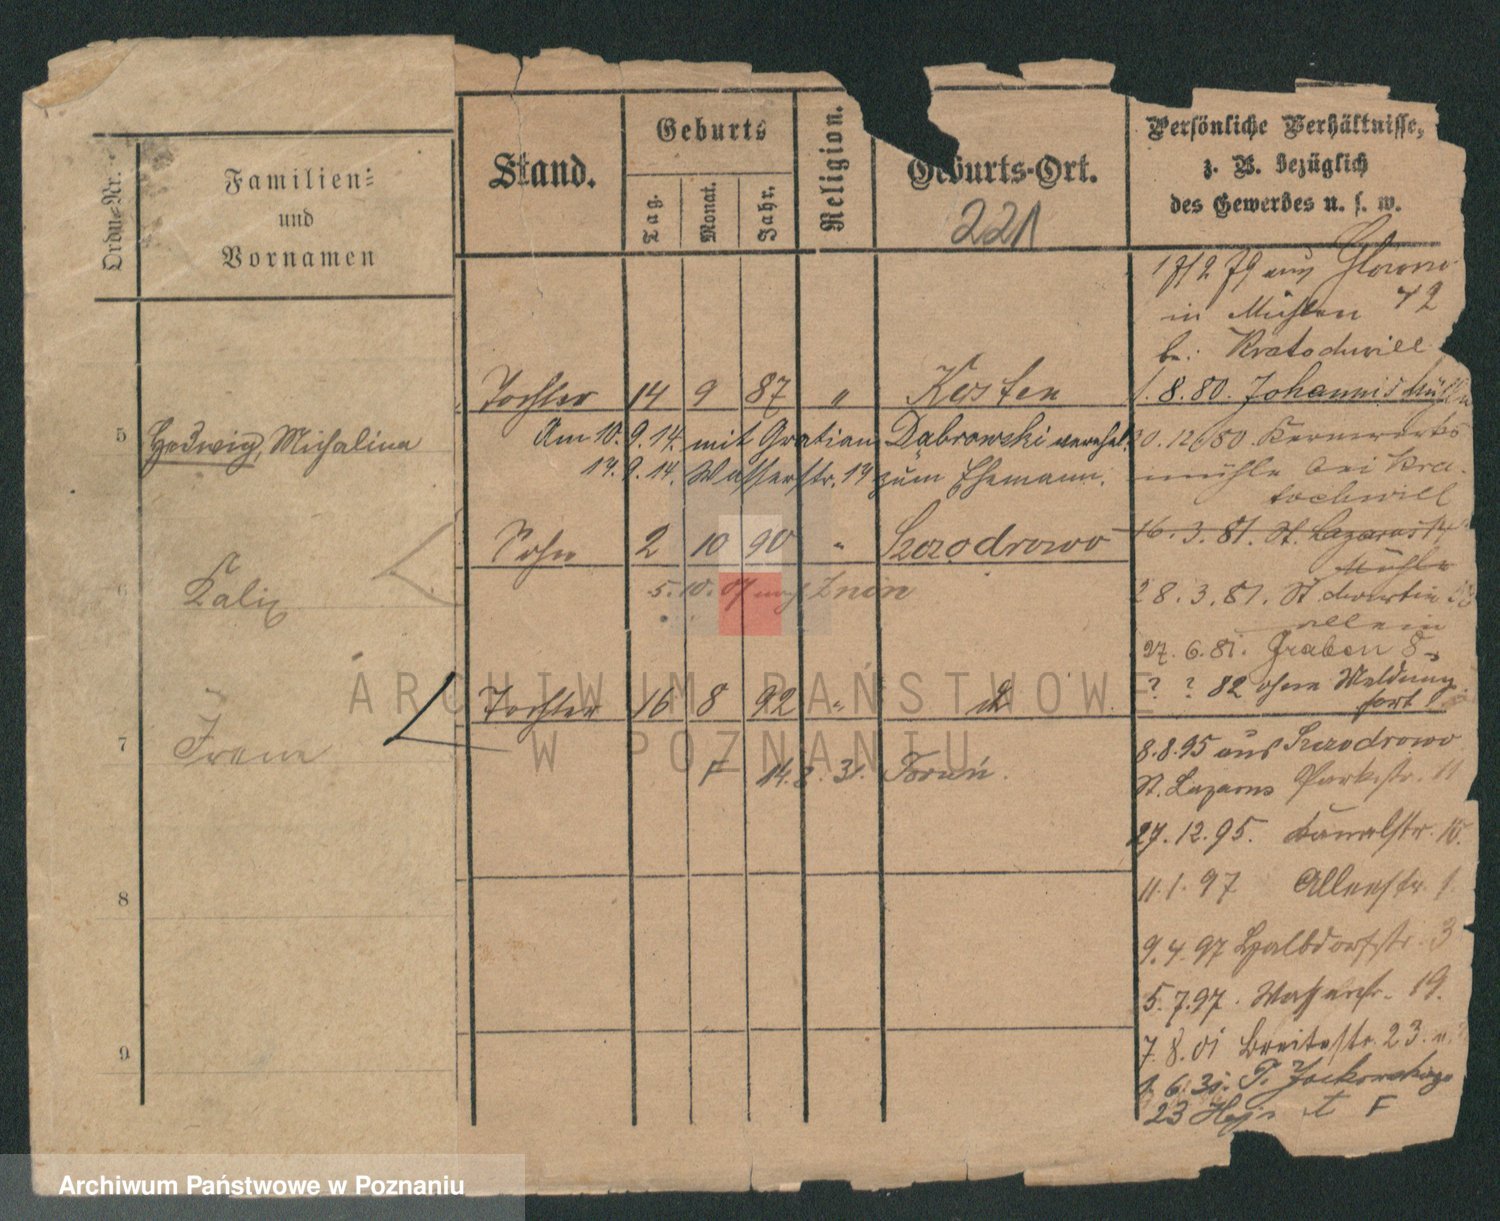 Ordn.-Nr.
Familien-
und
Vornamen
Stand.
Geburts
Tag.
Monat.
Jahr.
Religion.
Geburts-Ort.
221
Persönliche Verhältnisse,
z. B. bezüglich
des Gewerbes u. s. w.
5
Hedwig, Michalina
Tochter 14 9 87 " Kosten
Am 10.9.14. mit Gratian Dąbrowski verehel.
14.9.14. Wasserstr. 19 zum Ehemann.
6
Felix
Sohn 2 10 90 " Szczodrowo
5.10.07 nach Znin
7
Irene
Tochter 16 8 92 "
F 14.8.31. Toruń.
8
9
17/2 79 aus Glowno
in Mühlen 42
be. Kratochwill
1.8.80. Johannis Mühle
30.12.80 Kernwerks
mühle bei Kra-
tochwill
16.3.81. St. Lazarus
Mühle
28.3.81. St. Martin
allein
27.6.81. Graben 8
? ? 82 ohne Meldung
fort
8.8.95 aus Szczodrowo
St. Lazarus Parkstr. 11
27.12.95. Kanalstr. 15.
11.1.97 Allerstr. 1.
9.4.97 Halbdorfstr. 3
5.7.97. Wasserstr. 19.
7.8.01 Breitestr. 23.
1.6.31. F. Jackowskiego
23 F
ARCHIWUM PAŃSTWOWE
W POZNANIU
Archiwum Państwowe w Poznaniu